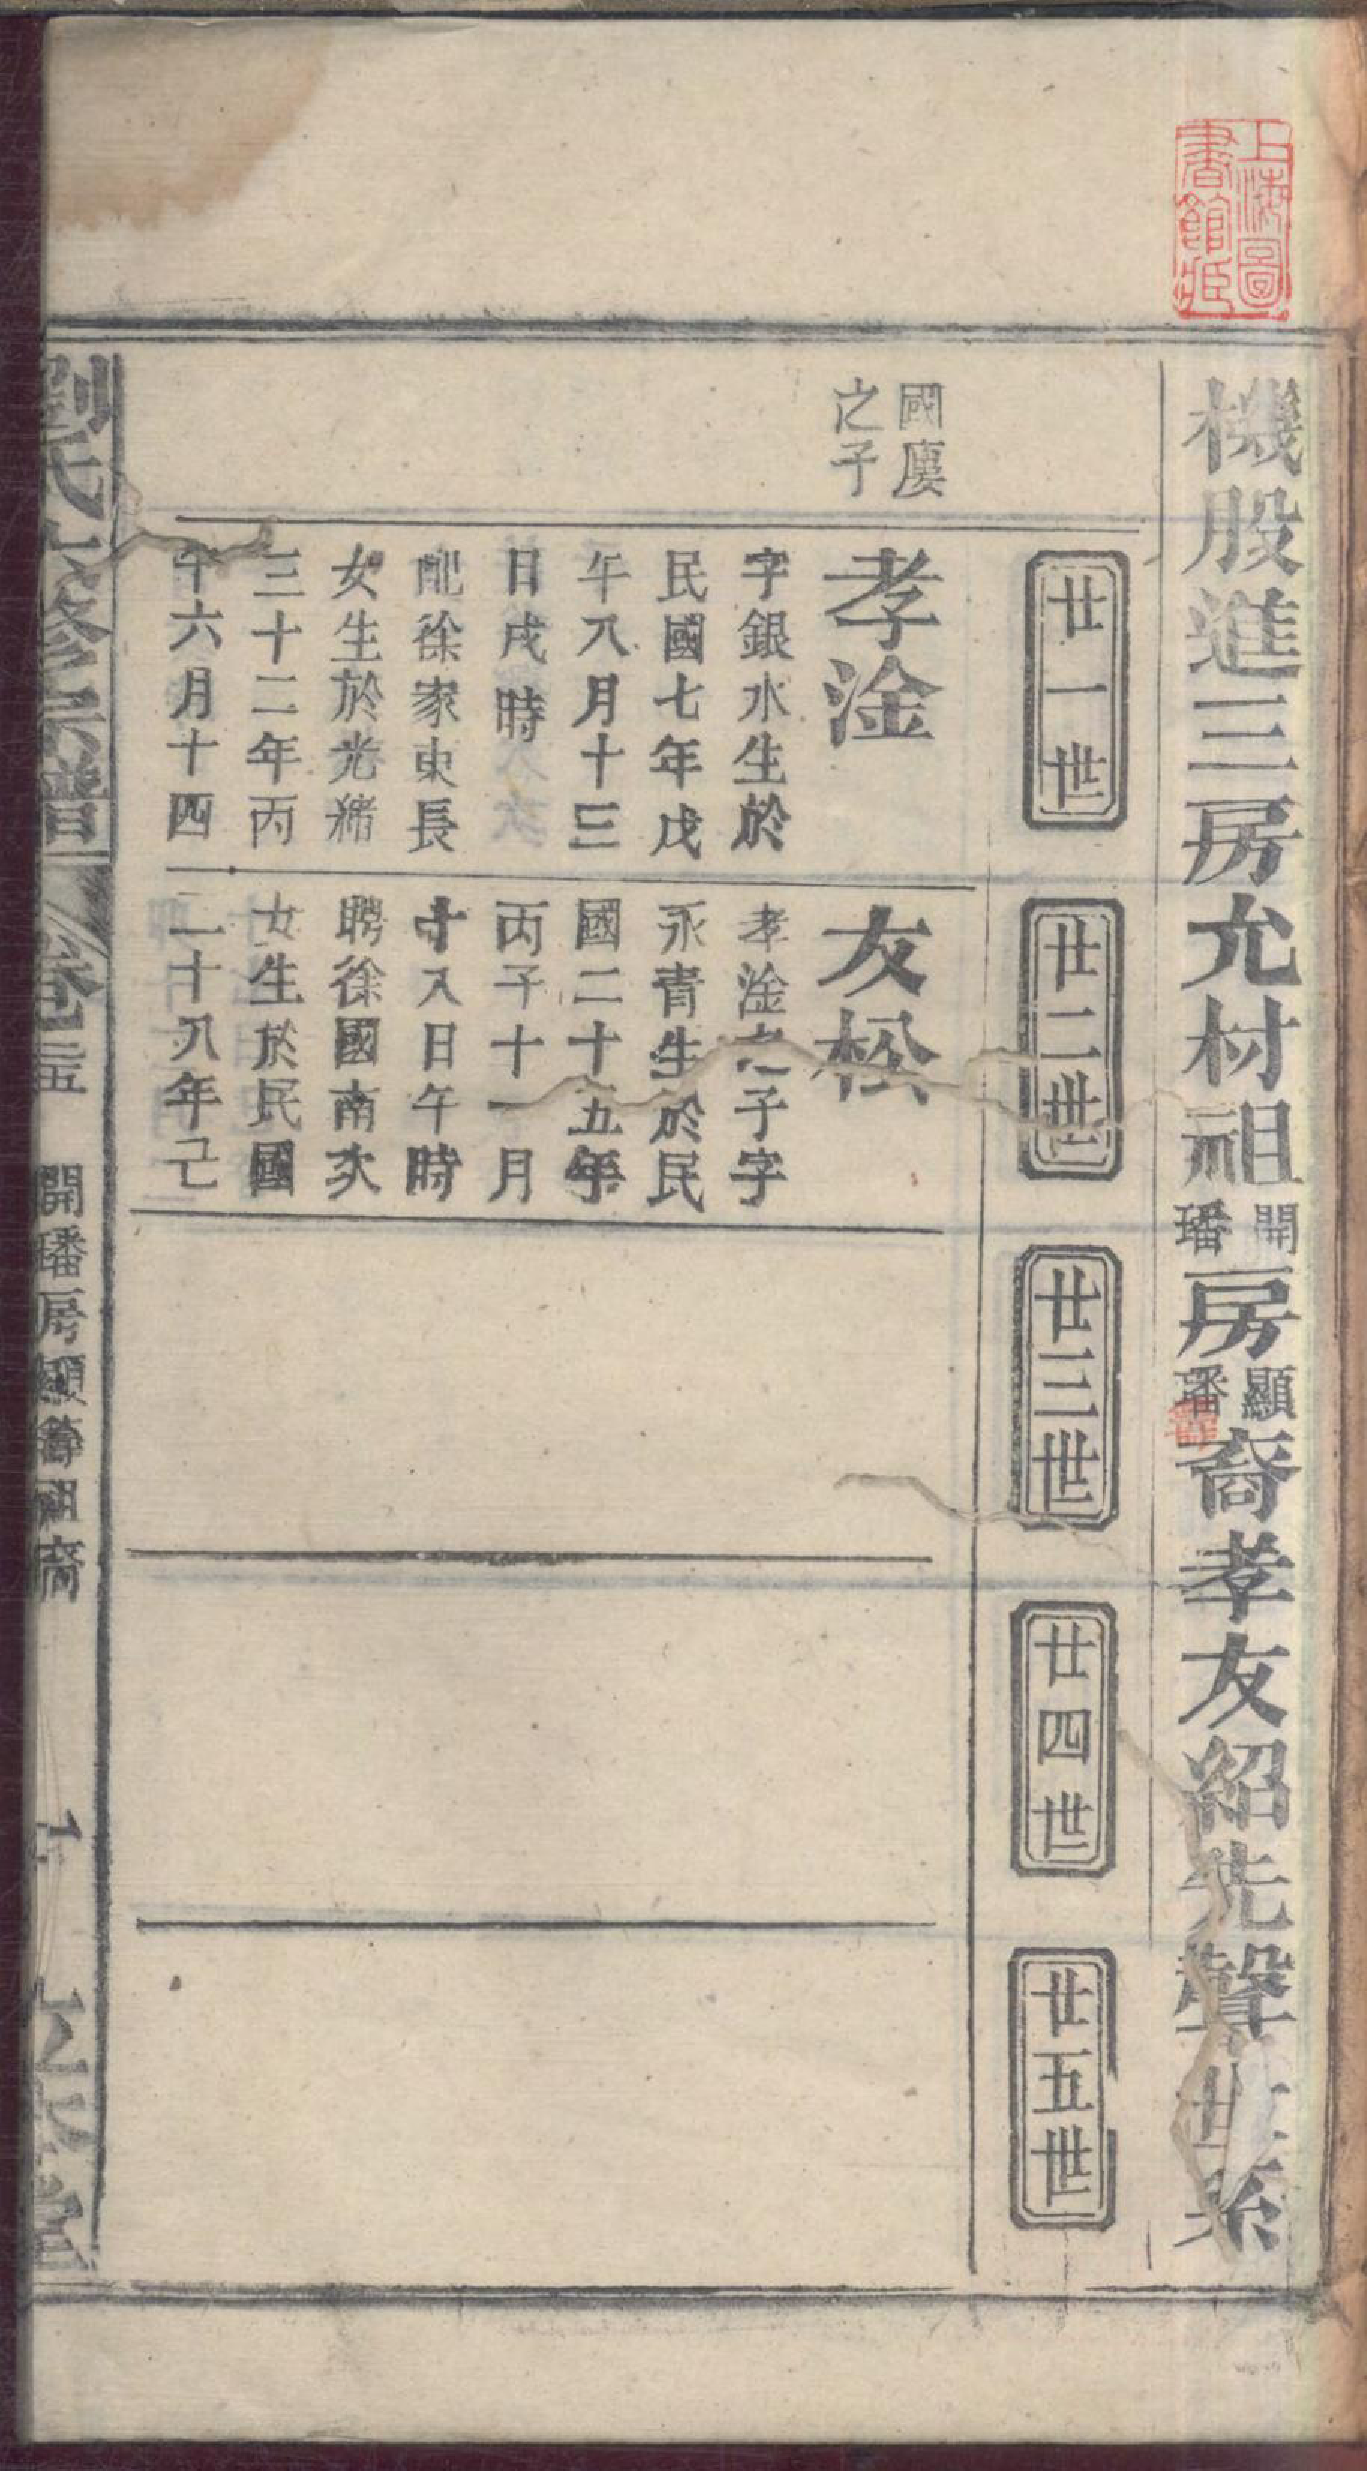 上海圖書館藏
機股進三房允材祖開璠房顯璠裔孝友紹先聲世系
廿一世
廿二世
廿三世
廿四世
廿五世
國慶
之子
孝淦
字銀水生於
民國七年戊
午八月十三
日戌時
配徐家東長
女生於光緒
三十二年丙
午六月十四
友松
孝淦之子字
永青生於民
國二十五年
丙子十一月
十八日午時
聘徐國南次
女生於民國
二十八年己
劉氏 修宗譜
卷三五
開璠房顯 祖裔
一
堂